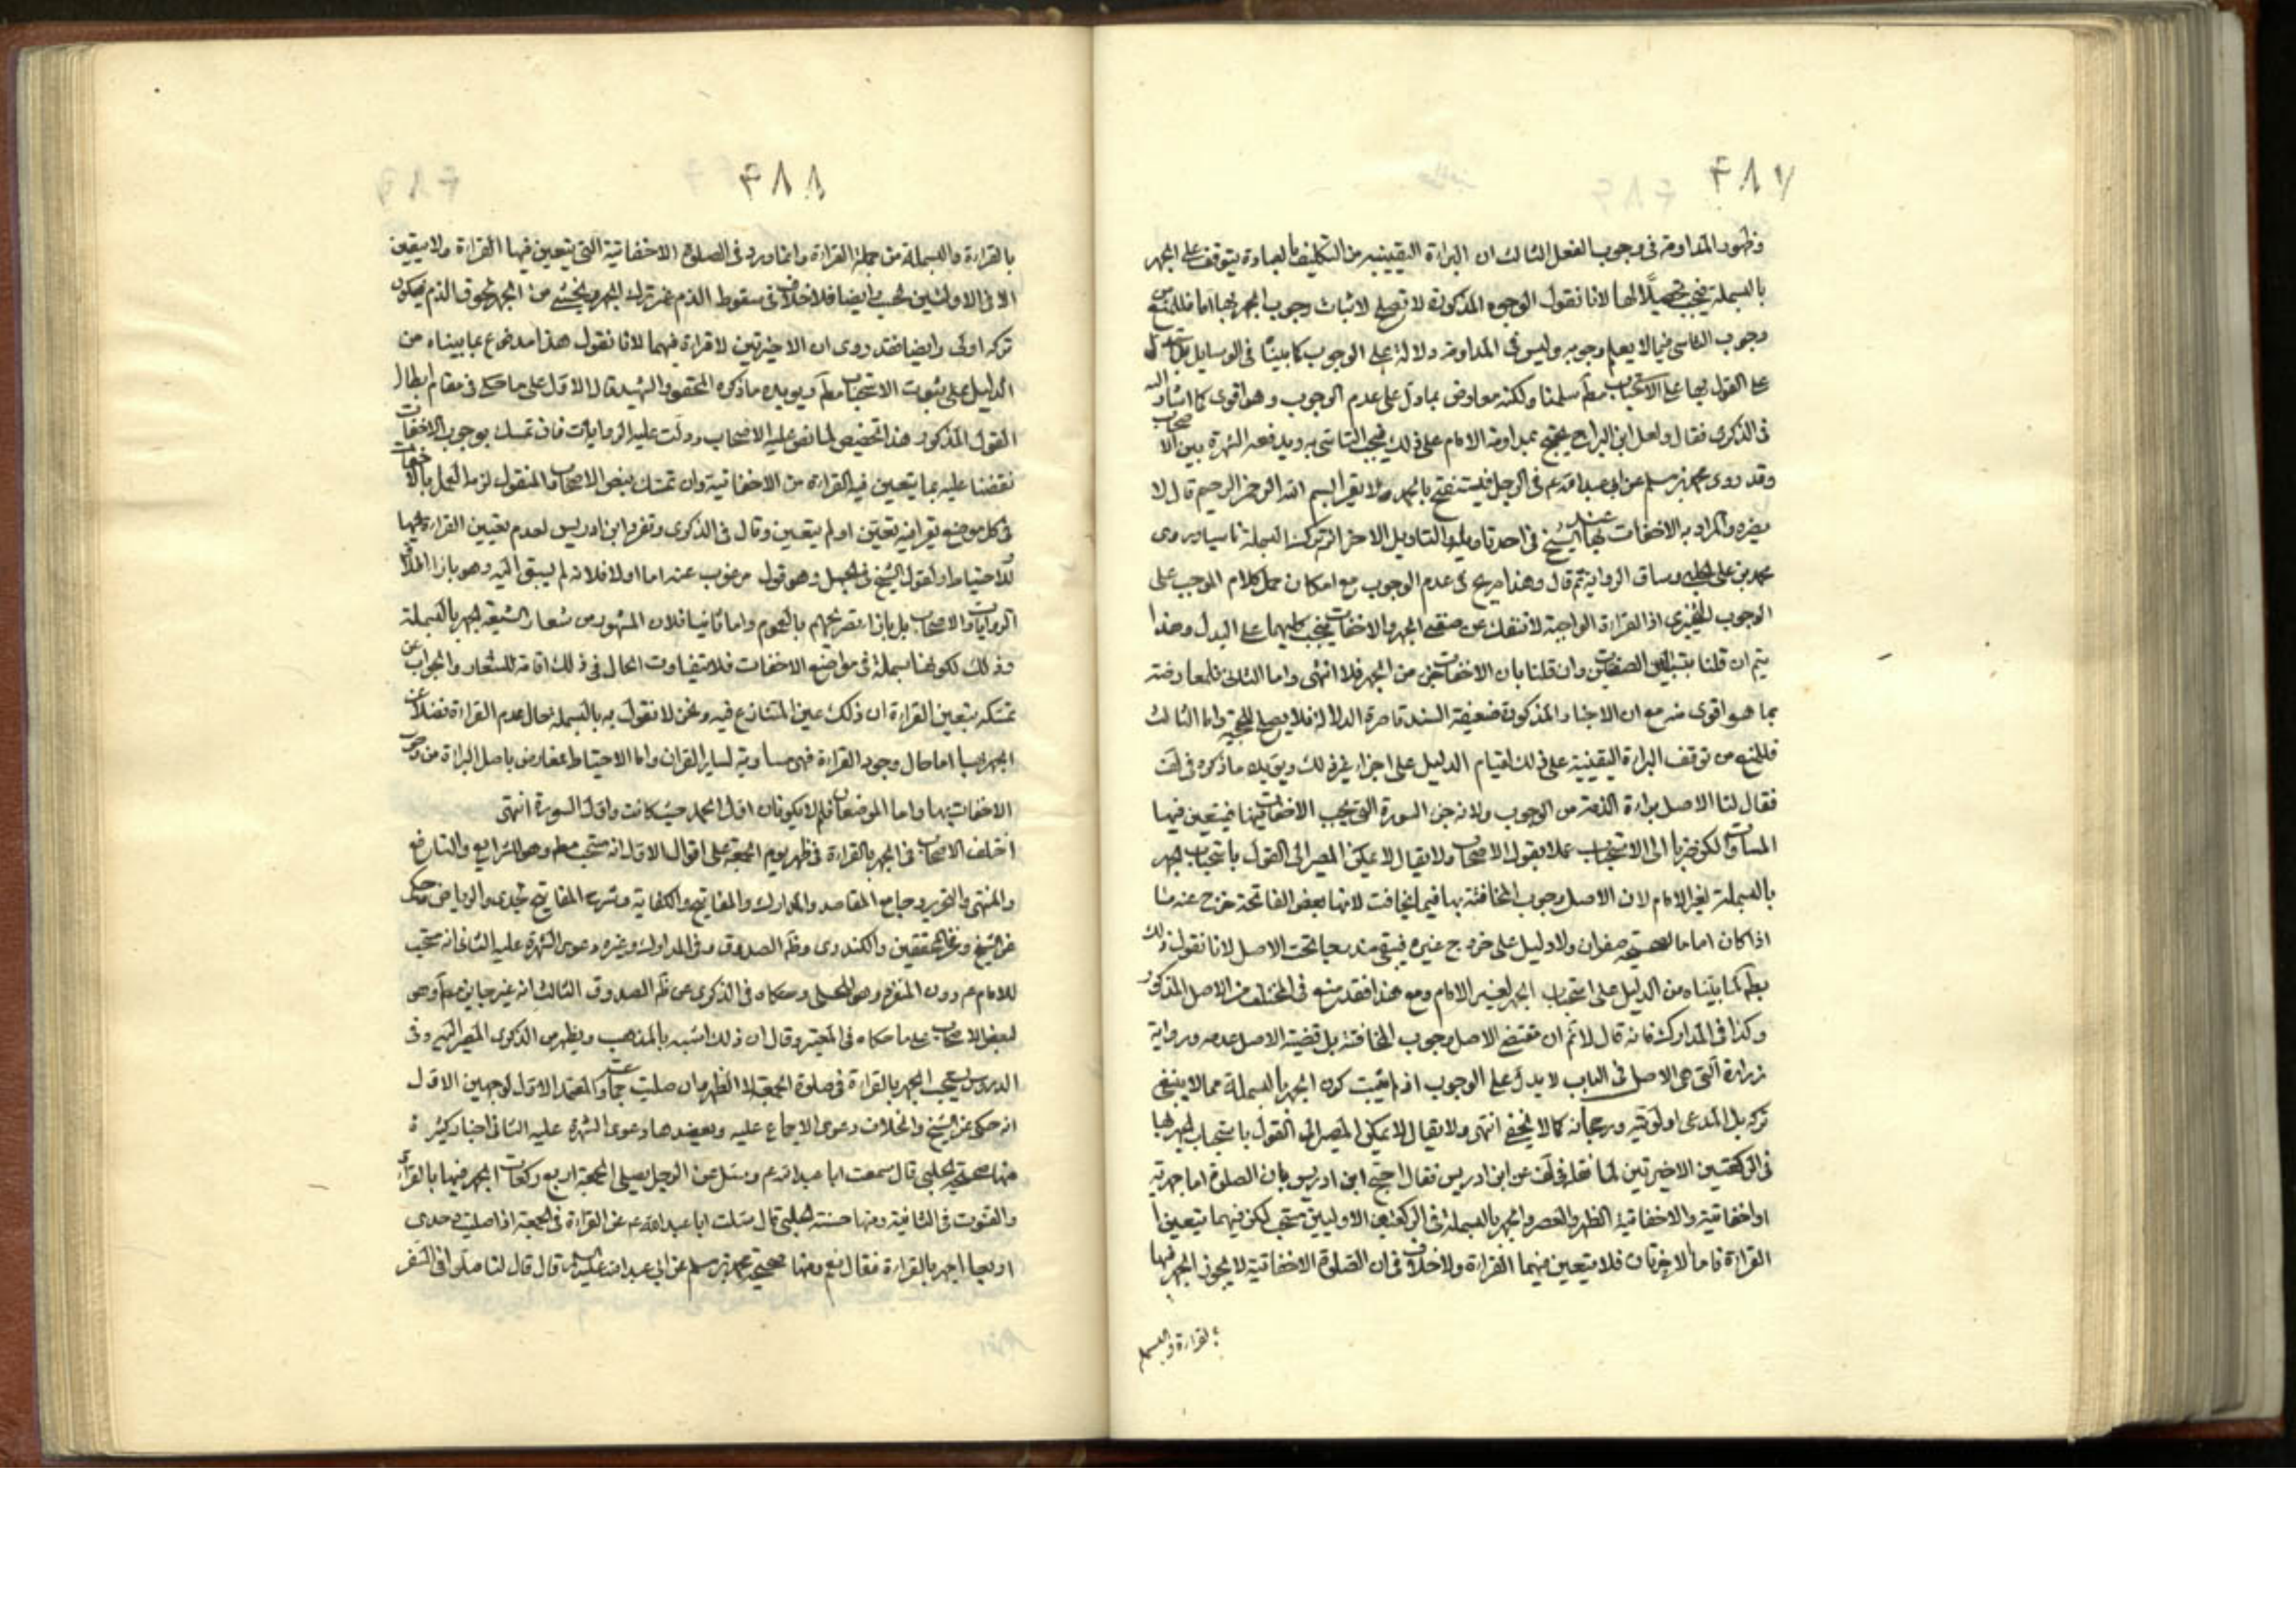 ۴۸۷
وظهور المداومة فى وجوب الفعل الثالث ان البراءة اليقينية من التكليف بالعبادة يتوقف على الجهر
بالبسملة فيجب تحصيلا لها لانا نقول الوجوه المذكورة لا تصلح لاثبات وجوب الجهر بها اما فللمنع من
وجوب التاسى فيما لا يعلم وجوبه وليس فى المداومة دلالة على الوجوب كما بينا فى الوسايل بل
على القول بها على الاستحباب مط سلمنا ولكنه معاوض بما دل على عدم الوجوب وهو اقوى كما اشار اليه
فى الذكرى فقال ولعل ابن البراج يحتج بمداومة الامام على ذلك فيجب التاسى به ويدفعه الشهرة بين الاصحاب
وقد روى محمد بن مسلم عن ابى عبد الله ع فى الرجل يستفتح بالحمد ولا يقرا بسم الله الرحمن الرحيم قال لا
يضره والمراد به الاخفات بها عند الشيخ فى احد تاويليه والتاويل الاخر ترك البسملة ناسيا وروى
محمد بن على الحلبى وساق الرواية ثم قال وهذا صريح فى عدم الوجوب مع امكان حمل كلام الموجب على
الوجوب التخييرى اذ القراءة الواجبة لا تنفك عن صفتى الجهر والاخفات فيجب كليهما على البدل وهذا
يتم ان قلنا بتباين الصفتين وان قلنا بان الاخفات جزء من الجهر فلا انتهى واما الثانى فلمعارضته
بما هو اقوى منه مع ان الاخبار المذكورة ضعيفة السند قاصرة الدلالة فلا يصلح للحجية واما الثالث
فللمنع من توقف البراءة اليقينية على ذلك لقيام الدليل على اجزاء غير ذلك ويؤيده ما ذكره فى لف
فقال لنا الاصل براءة الذمة من الوجوب ولانه جزء السورة التى يجب الاخفات فيها فيتعين فيها
المساواة لكن صرنا الى الاستحباب عملا بقول الاصحاب ولا يقال لا يمكن المصير الى القول باستحباب الجهر
بالبسملة لغير الامام لان الاصل وجوب المخافتة بها فيما يخافت لانها بعض الفاتحة خرج عنه ما
اذا كان اماما لصحيحة صفوان ولا دليل على خروج غيره فيبقى مندرجا تحت الاصل لانا نقول ذلك
بط لما بيناه من الدليل على استحباب الجهر لغير الامام ومع هذا فقد منع فى المختلف من الاصل المذكور
وكذا فى المدارك فانه قال لا نم ان مقتضى الاصل وجوب المخافتة بل قضية الاصل عدمه ورواية
زرارة التى هى الاصل فى الباب لا يدل على الوجوب اذ لم يثبت كون الجهر بالبسملة مما لا ينبغى
تركه بل المدعى اولويته ورجحانه كما لا يخفى انتهى ولا يقال لا يمكن المصير الى القول باستحباب الجهر بها
فى الركعتين الاخيرتين لما نقله فى لف عن ابن ادريس فقال احتج ابن ادريس بان الصلوة اما جهرية
او اخفاتية والاخفاتية الظهر والعصر والجهر بالبسملة فى الركعتين الاوليين مستحب لكن فيهما يتعين
القراءة فاما الاخرتان فلا يتعين فيهما القراءة ولا خلاف فى ان الصلوة الاخفاتية لا يجوز الجهر فيها
بالقراءة والبسملة
۴۸۸
بالقراءة والبسملة من جملة القراءة وانما ورد فى الصلوة الاخفاتية التى يتعين فيها القراءة ولا يتعين
الا فى الاوليين فحسب وايضا فلا خلاف فى سقوط الذم عن ترك الجهر ويخشى من الجهر لحوق الذم فيكون
تركه اولى وايضا فقد روى ان الاخيرتين لا قراءة فيهما لانا نقول هذا مدفوع بما بيناه من
الدليل على ثبوت الاستحباب مط ويويده ما ذكره المحقق والشهيد قال الاول على ما حكى فى مقام ابطال
القول المذكور هذا تخصيص لما نص عليه الاصحاب ودلت عليه الروايات فان تمسك بوجوب الاخفات
نقضنا عليه بما يتعين فيه القراءة من الاخفاتية وان تمسك بنص الاصحاب المنقول لزمه العمل بالاخفات
فى كل موضع يقرا فيه تعين او لم يتعين وقال فى الذكرى وتفرد ابن ادريس لعدم تعيين القراءة فيها
للاحتياط ولقول الشيخ فى الجمل وهو قول مرغوب عنه اما اولا فلانه لم يسبق اليه وهو بازاء اطلاق
الروايات والاصحاب بل بازاء تصريحهم بالعموم واما ثانيا فلان المشهور من شعار الشيعة الجهر بالبسملة
وذلك لكونها بسملة فى مواضع الاخفات فلا يتفاوت الحال فى ذلك اقامة للشعار والجواب عن
تمسكه بتعين القراءة ان ذلك عين المتنازع فيه ونحن لا نقول به بالبسملة حال عدم القراءة فضلا عن
الجهر بها اما حال وجود القراءة فهى مساوية لساير القران واما الاحتياط فمعارض باصل البراءة من وجوب
الاخفات بها واما الموضعان فلم لا يكونان اول الحمد حيث كانت واول السورة انتهى
اختلف الاصحاب فى الجهر بالقراءة فى ظهر يوم الجمعة على اقوال الاول انه مستحب مط وهو للشرايع والنافع
والمنتهى والتحرير وجامع المقاصد والمدارك والمفاتيح والكفاية وشرح المفاتيح لجدى والرياض وحكى
عن الشيخ وعن المحققين والكندرى وظ الصدوق وفى المدارك وغيره دعوى الشهرة عليه الثانى انه مستحب
للامام دون المنفرد وهو للحلى وحكاه فى الذكرى عن ظ الصدوق الثالث انه غير جايز مط وهو
لبعض الاصحاب على ما حكاه فى المعتبر وقال ان ذلك اشبه بالمذهب ويظهر من الذكرى المصير اليه وفى
الدروس يستحب الجهر بالقراءة فى صلوة الجمعة لا الظهر وان صليت جماعة والمعتمد الاول لوجهين الاول
انه حكى عن الشيخ والخلاف دعوى الاجماع عليه ويعضدها دعوى الشهرة عليه الثانى اخبار كثيرة
منها صحيحة الحلبى قال سمعت ابا عبد الله ع وسئل عن الرجل يصلى الجمعة اربع ركعات ايجهر فيها بالقراءة
والقنوت فى الثانية ومنها حسنة الحلبى قال سئلت ابا عبد الله ع عن القراءة فى الجمعة اذا صليت وحدى
اربعا اجهر بالقراءة فقال نعم ومنها صحيحة محمد بن مسلم عن ابى عبد الله عليه السلام قال قال لنا صلوا فى السفر